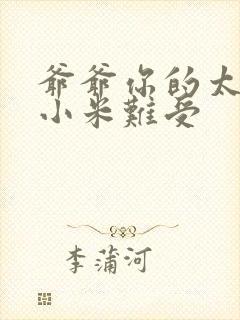 爷爷你的太
小米難受
李蒲河